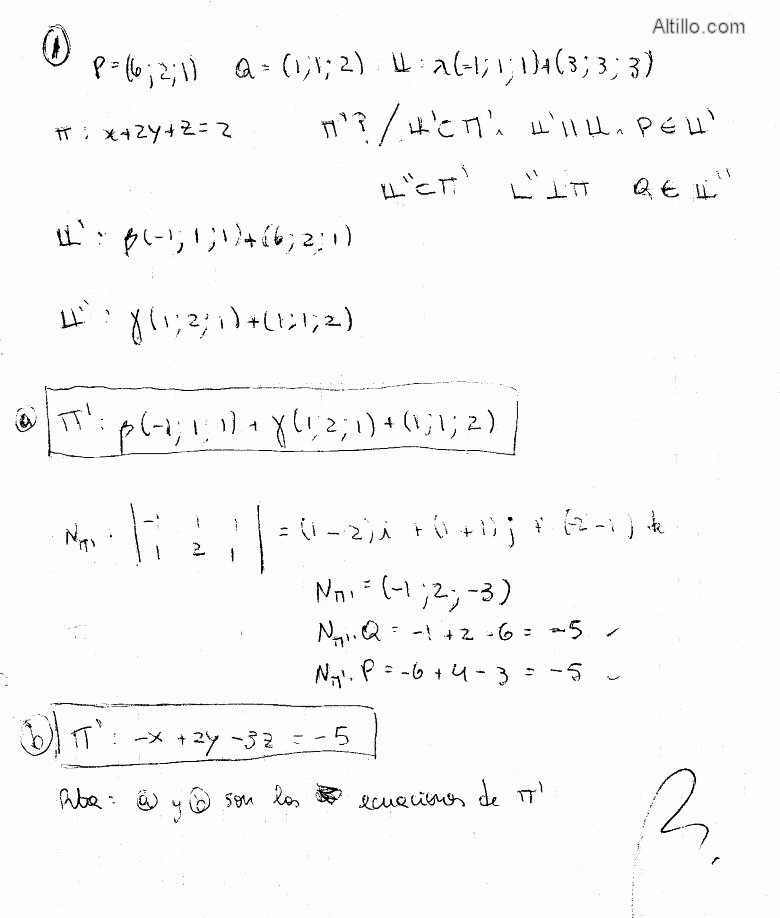 Altillo.com
① P=(6;2;1) Q=(1;1;2) 𝕃: λ(-1;1;1)+(3;3;3)
π: x+2y+z=2 π'? / 𝕃'⊂π' ∧ 𝕃'∥𝕃 ∧ P∈𝕃'
𝕃''⊂π' 𝕃''⊥π Q∈𝕃''
𝕃': β(-1;1;1)+(6;2;1)
𝕃'': γ(1;2;1)+(1;1;2)
ⓐ π': β(-1;1;1)+γ(1;2;1)+(1;1;2)
Nπ': | -1 1 1 | = (1-2)i + (-1+1)j + (-2-1)k
| 1 2 1 |
Nπ' = (-1;2;-3)
Nπ'.Q = -1+2-6 = -5 ✓
Nπ'.P = -6+4-3 = -5 ✓
ⓑ π': -x+2y-3z = -5
Rta: ⓐ y ⓑ son las ecuaciones de π'